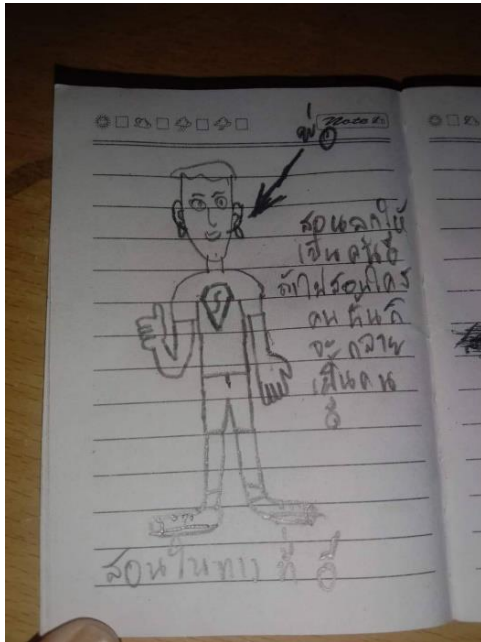 พ่อ
สอนลูกให้
เป็นคนดี
ถ้าไปสอนใคร
คนนั้นก็
จะกลาย
เป็นคน
ดี
S
สอนในทาง ที่ ดี